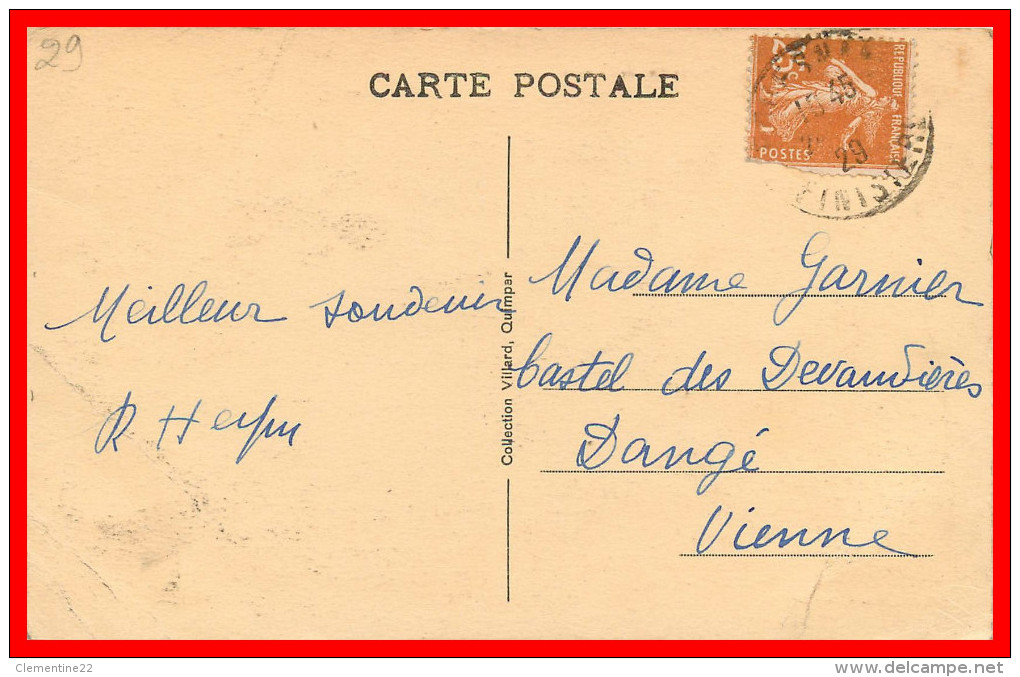 29
CARTE POSTALE
25c
REPUBLIQUE FRANÇAISE
POSTES
15 45
29
FINISTERE
Meilleur souvenir
R
Collection Villard, Quimper
Madame Garnier
Castel des Devandières
Dangé
Vienne
Clementine22
www.delcampe.net